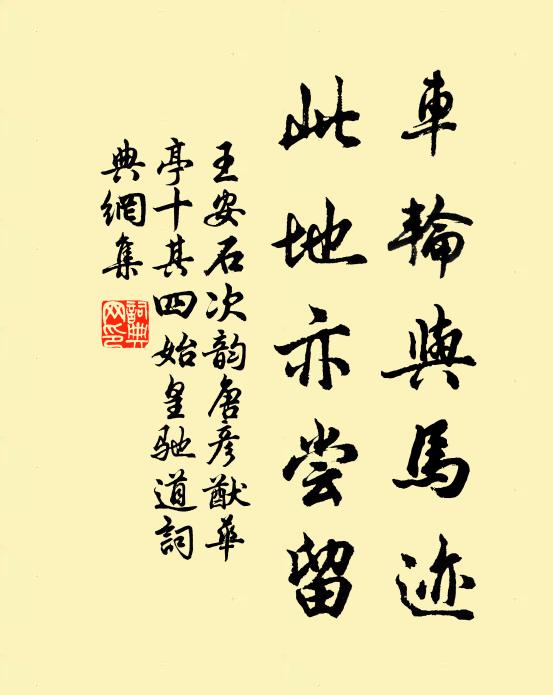 車輪與馬迹
此地亦嘗留
王安石次韵唐彦猷華
亭十其四始皇馳道詞
典網集
詞典
网印